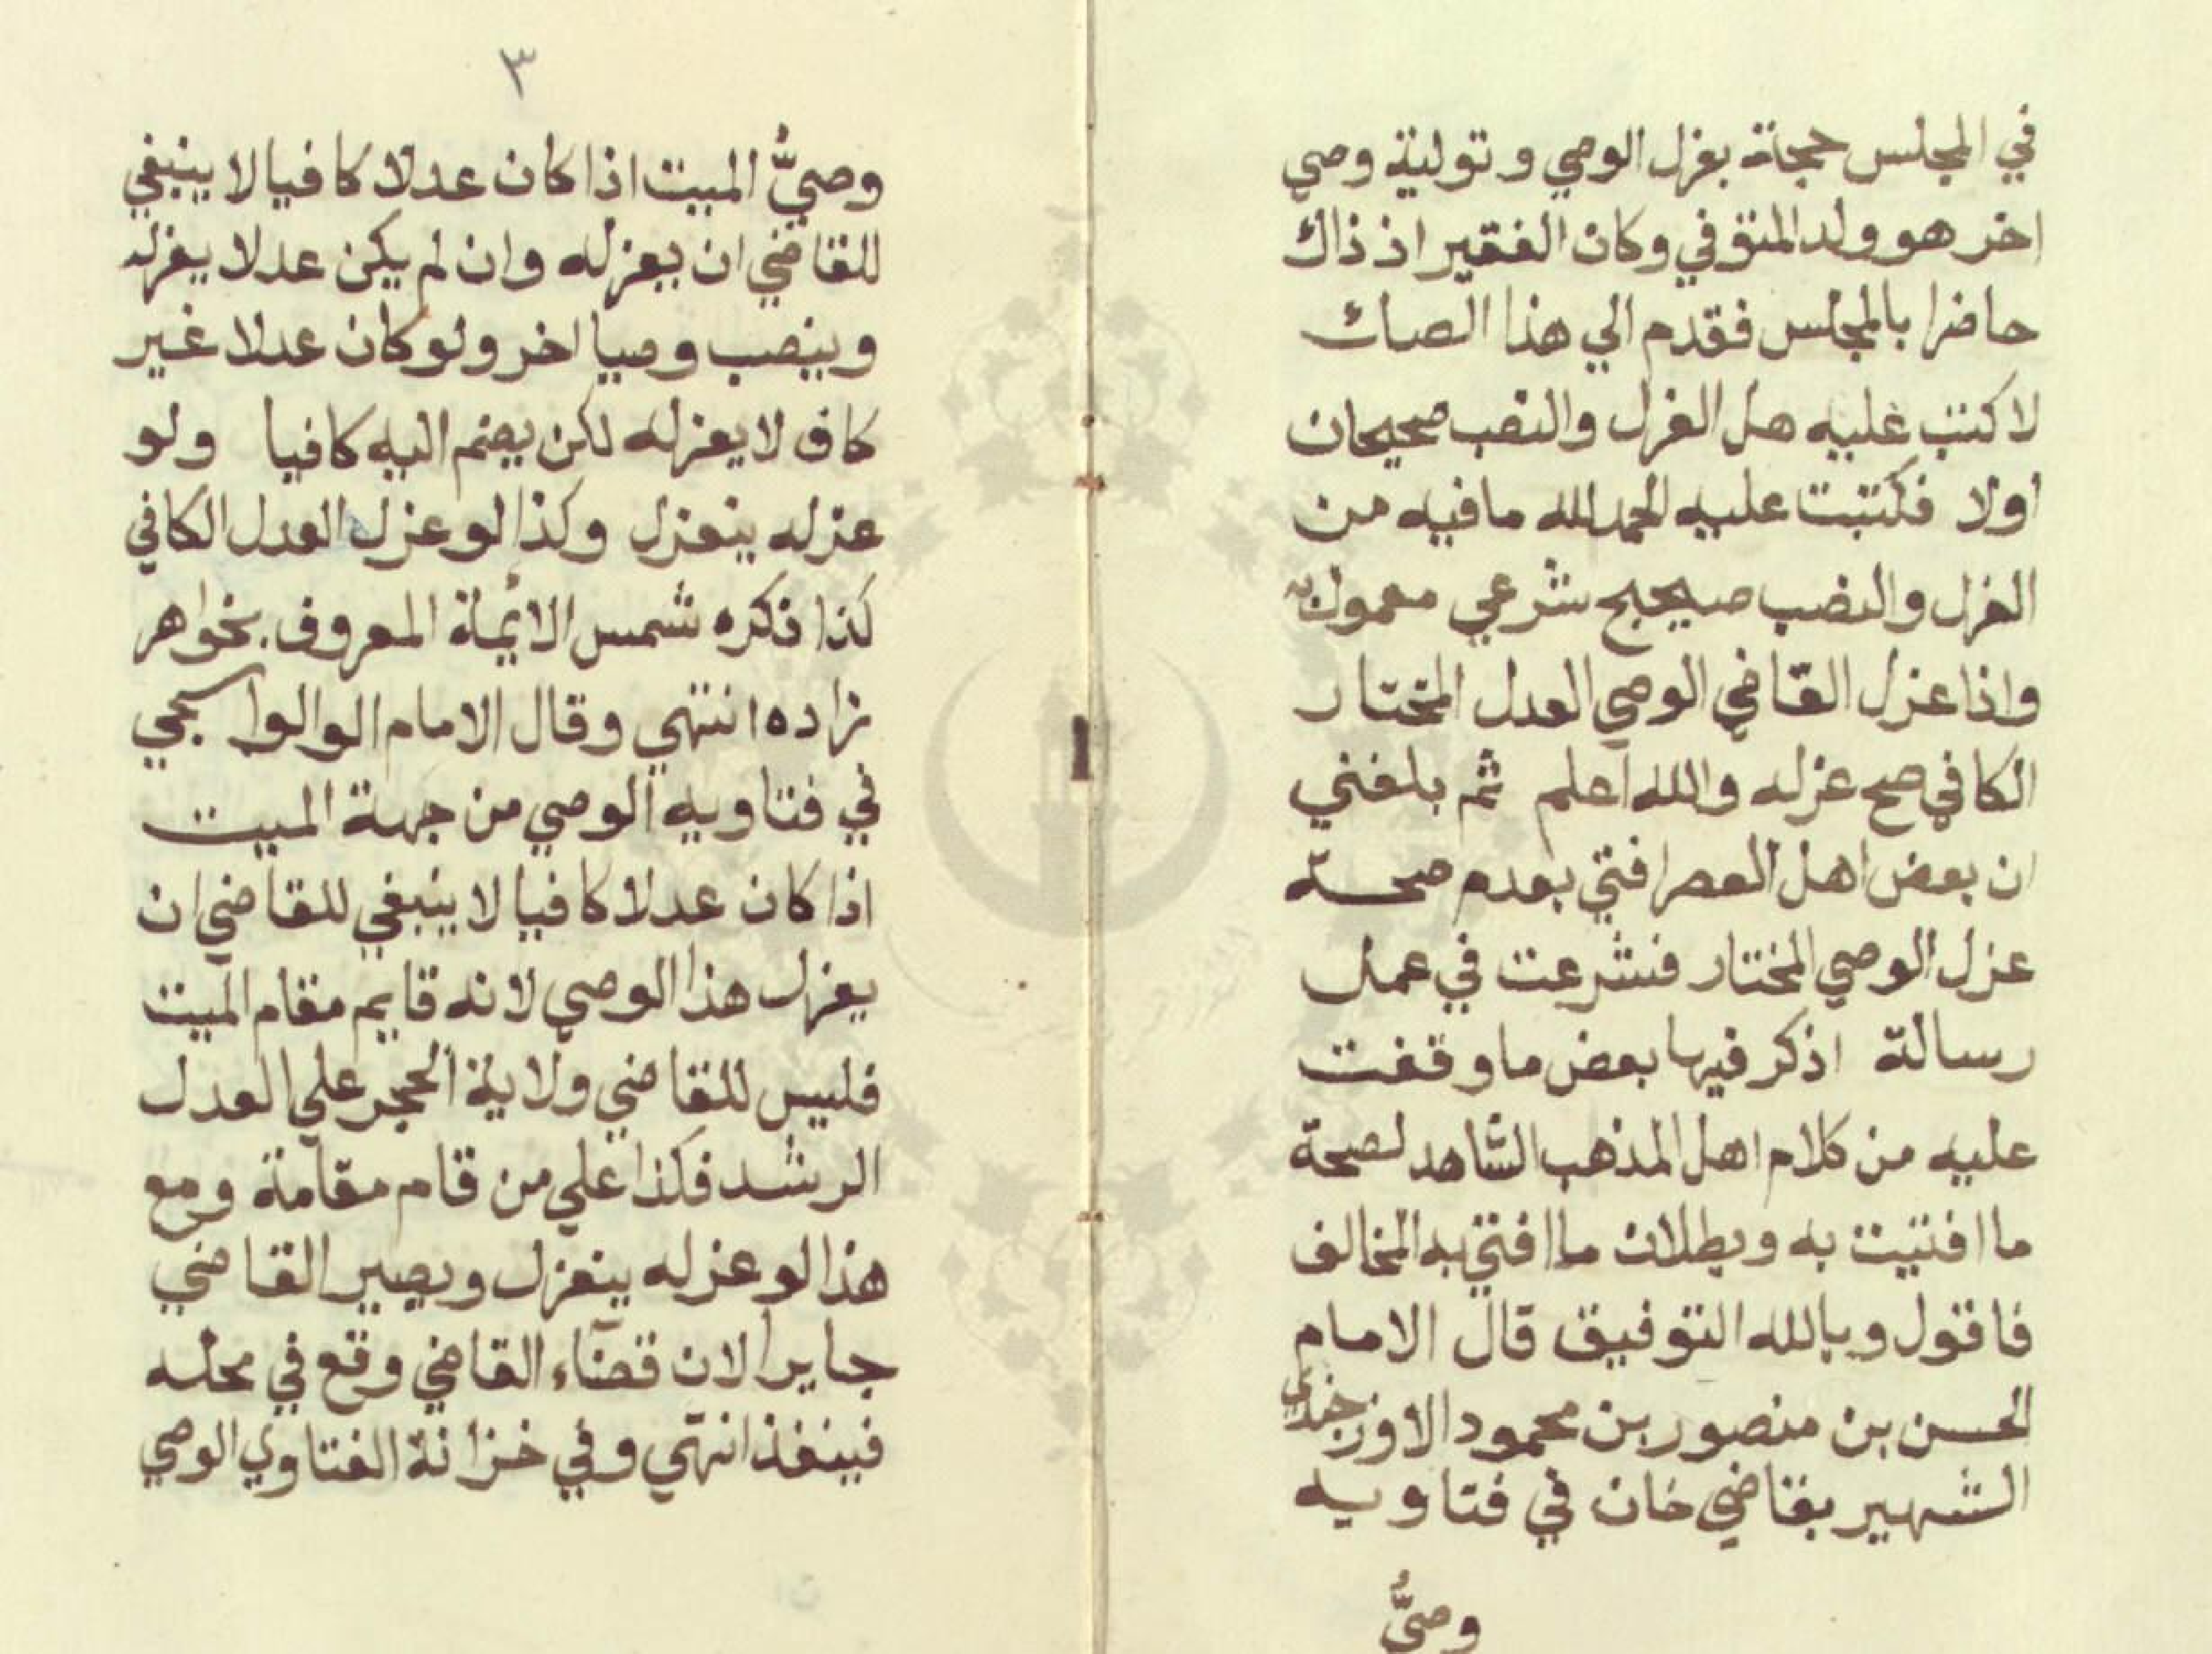 في المجلس حجة بعزل الوصي وتولية وصي
اخر هو ولد المتوفي وكان الفقير اذ ذاك
حاضرا بالمجلس فقدم الي هذا الصك
لاكتب عليه هل العزل والنصب صحيحان
اولا فكتبت عليه الحمد لله ما فيه من
العزل والنصب صحيح شرعي معمول به
واذا عزل القاضي الوصي العدل المختار
الكافي صح عزله والله اعلم ثم بلغني
ان بعض اهل العصر افتي بعدم صحة
عزل الوصي المختار فشرعت في عمل
رسالة اذكر فيها بعض ما وقفت
عليه من كلام اهل المذهب الشاهد لصحة
ما افتيت به وبطلان ما افتي به المخالف
فاقول وبالله التوفيق قال الامام
الحسن بن منصور بن محمود الاوزجندي
الشهير بقاضي خان في فتاويه
وصيُّ
٣
وصيُّ الميت اذا كان عدلا كافيا لا ينبغي
للقاضي ان يعزله وان لم يكن عدلا يعزله
وينصب وصيا اخر ولو كان عدلا غير
كاف لا يعزله لكن يضم اليه كافيا ولو
عزله ينعزل وكذا لو عزل العدل الكافي
كذا ذكره شمس الائمة المعروف بخواهر
زاده انتهي وقال الامام الوالوالجي
في فتاويه الوصي من جهة الميت
اذا كان عدلا كافيا لا ينبغي للقاضي ان
يعزل هذا الوصي لانه قايم مقام الميت
فليس للقاضي ولاية الحجر علي العدل
الرشد فكذا علي من قام مقامة ومع
هذا لو عزله ينعزل ويصير القاضي
جايرا لان قضآء القاضي وقع في محله
فينفذ انتهي وفي خزانة الفتاوي الوصي